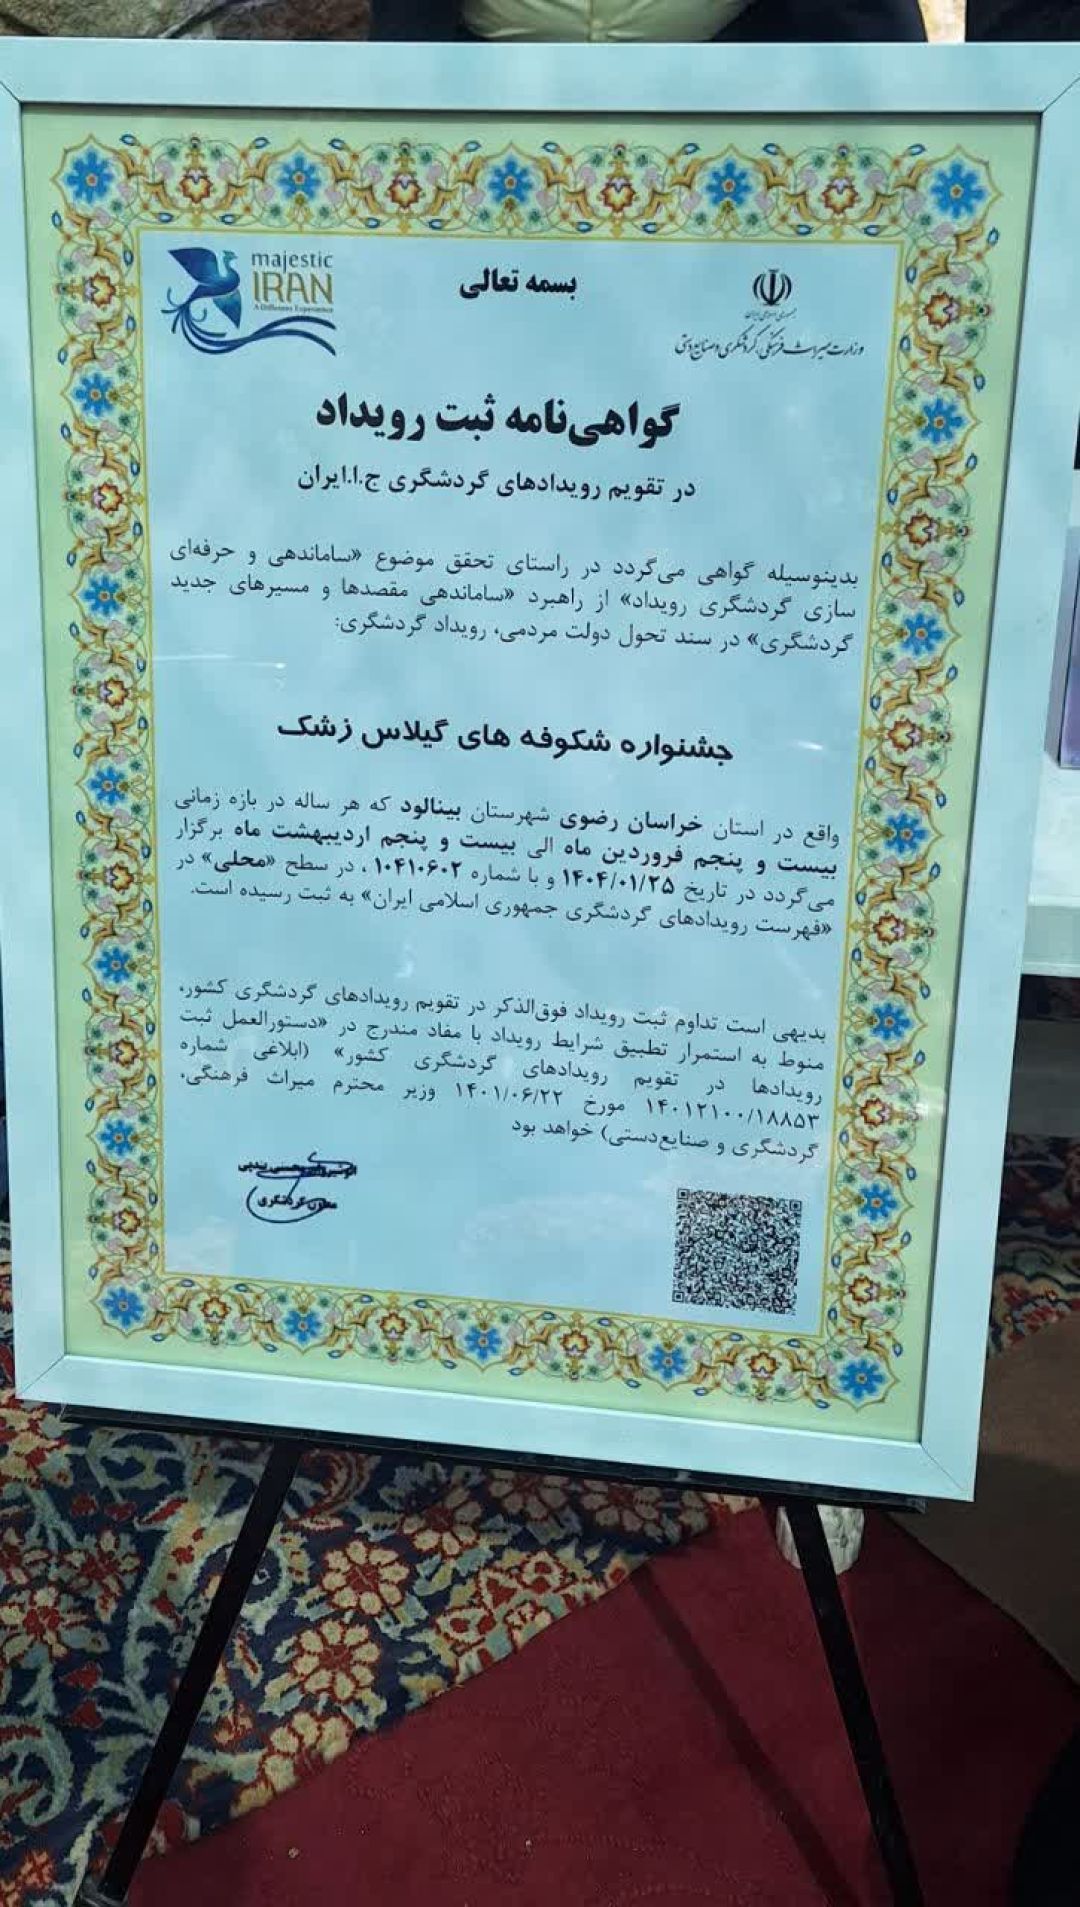 majestic
IRAN
A Different Experience
بسمه تعالی
جمهوری اسلامی ایران
وزارت میراث فرهنگی، گردشگری و صنایع دستی
گواهی‌نامه ثبت رویداد
در تقویم رویدادهای گردشگری ج.ا.ایران
بدینوسیله گواهی می‌گردد در راستای تحقق موضوع «ساماندهی و حرفه‌ای
سازی گردشگری رویداد» از راهبرد «ساماندهی مقصدها و مسیرهای جدید
گردشگری» در سند تحول دولت مردمی، رویداد گردشگری:
جشنواره شکوفه های گیلاس زشک
واقع در استان خراسان رضوی شهرستان بینالود که هر ساله در بازه زمانی
بیست و پنجم فروردین ماه الی بیست و پنجم اردیبهشت ماه برگزار
می‌گردد در تاریخ ۱۴۰۴/۰۱/۲۵ و با شماره ۱۰۴۱۰۶۰۲ ، در سطح «محلی» در
«فهرست رویدادهای گردشگری جمهوری اسلامی ایران» به ثبت رسیده است.
بدیهی است تداوم ثبت رویداد فوق‌الذکر در تقویم رویدادهای گردشگری کشور،
منوط به استمرار تطبیق شرایط رویداد با مفاد مندرج در «دستورالعمل ثبت
رویدادها در تقویم رویدادهای گردشگری کشور» (ابلاغی شماره
۱۴۰۱۲۱۰۰/۱۸۸۵۳ مورخ ۱۴۰۱/۰۶/۲۲ وزیر محترم میراث فرهنگی،
گردشگری و صنایع‌دستی) خواهد بود
معاون گردشگری